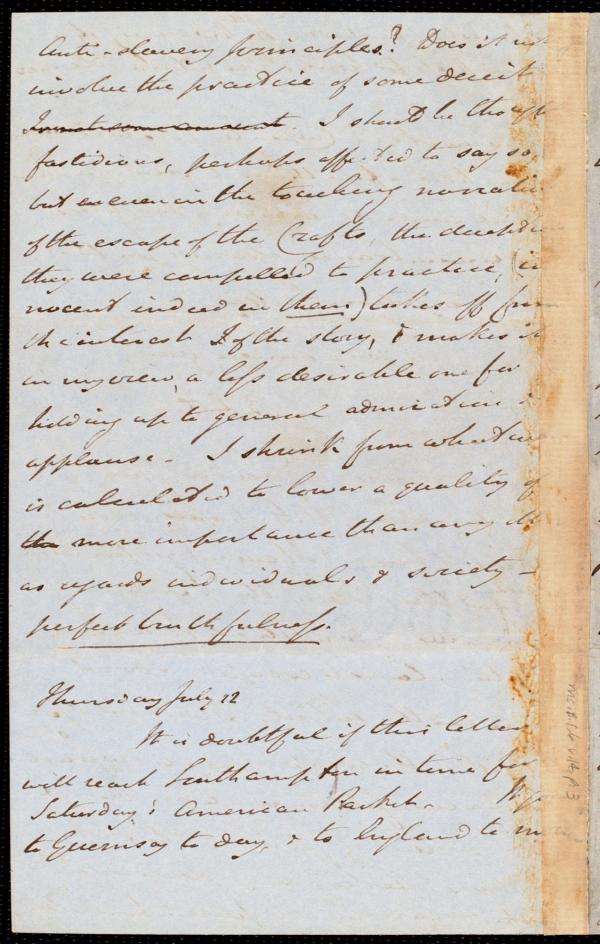 Anti-slavery principles? Does it not
involve the practice of some deceit
I should be thought
fastidious, perhaps affected to say so,
but even in the touching narrative
of the escape of the Crafts, the deception
they were compelled to practice, (in
nocent indeed in them) takes off from
the interest of the story, & makes it
in my view, a less desirable one for
holding up to general admiration &
applause - I shrink from whatever
is calculated to lower a quality of
the more importance than any other
as regards individuals & society -
perfect truthfulness.
Thursday July 12
It is doubtful if this letter
will reach Southampton in time for
Saturday's American Packet - We go
to Guernsey to day, & to England to mor